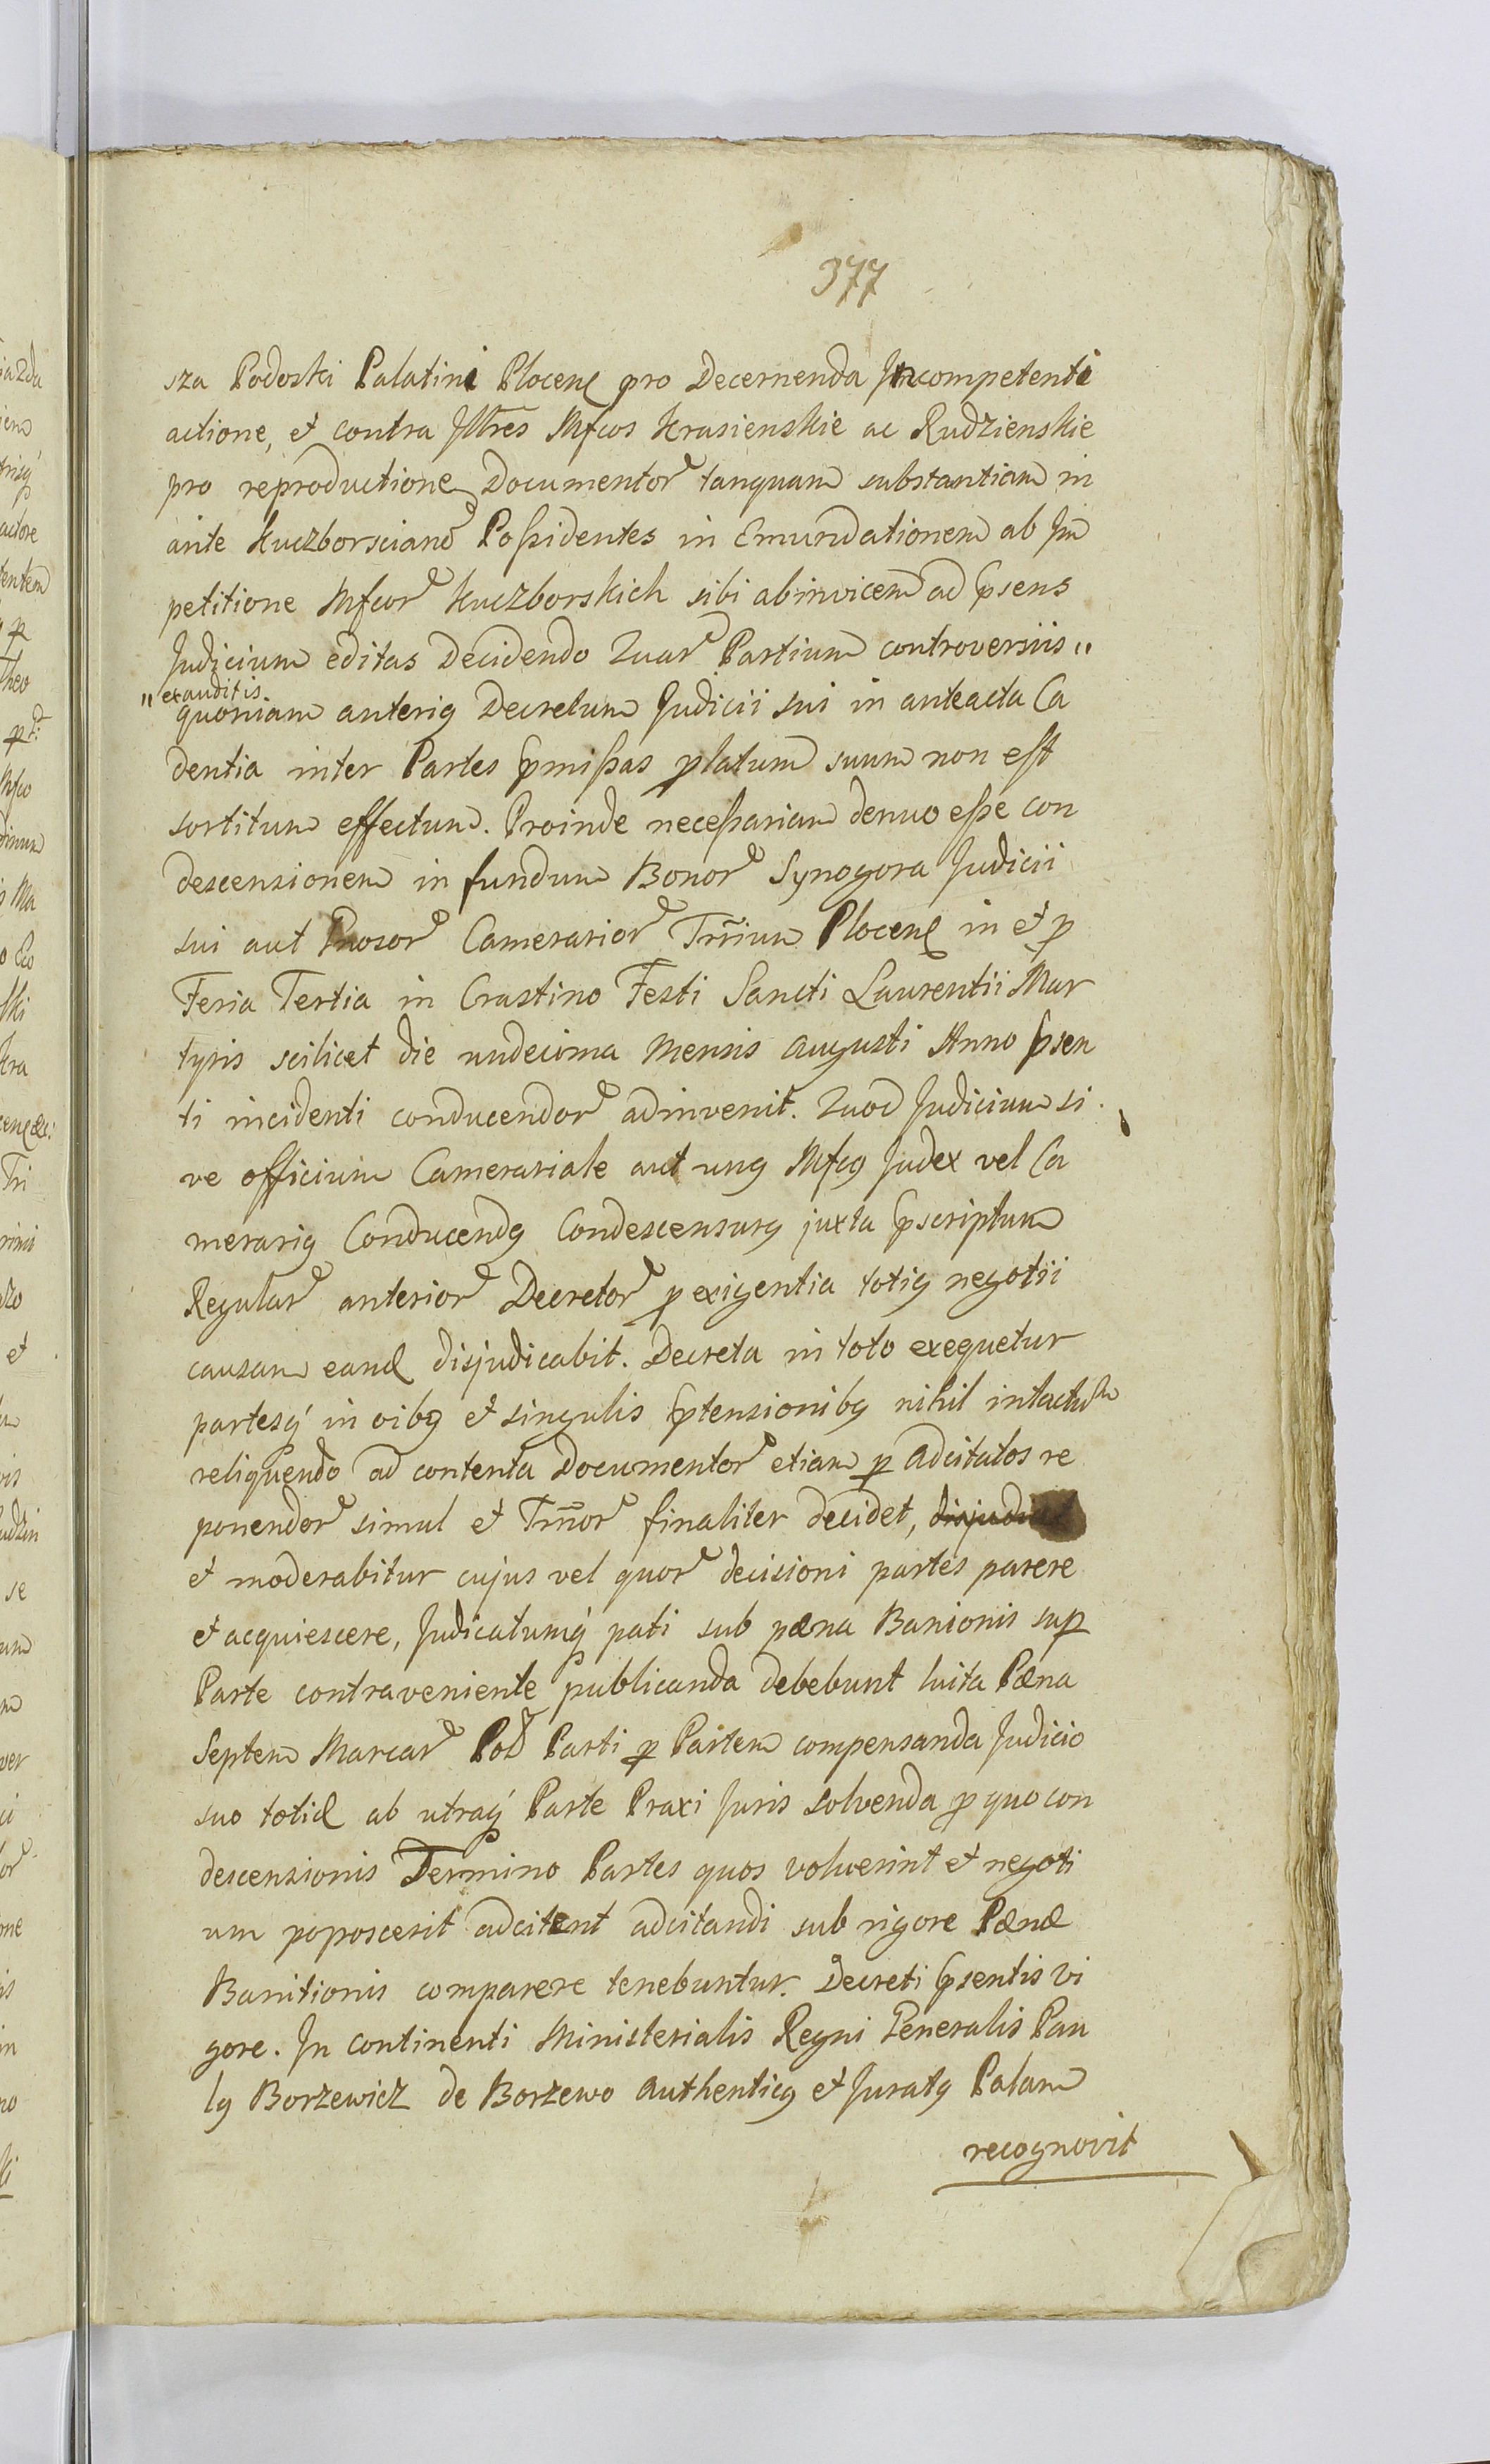 377
sza Podoski Palatini Plocen̄ pro Decernenda Incompetenti
actione, et contra Jllr̃es Mfcos Krasienskie ac Rudzienskie
pro reproductione Documentor̃ tanquam substantiam in
ante Kuczborscianã Possidentes in Emundationem ab Jm
petitione Mfcor̃ Kuczborskich sibi abinvicem ad p̃sens
Judicium editas Decidendo Quar̃ Partium controversiis "
" exauditis
quoniam anterig Decretum Judicii sui in anteacta Ca
dentia inter Partes p̃missas p̃latum suum non est
sortitum effectum. Proinde necessariam denuo esse con
descensionem in fundum Bonor̃ Synogora Judicii
sui aut Gnosor̃ Camerarior̃ Trr̃ium Plocen̄ in et p̱
Feria Tertia in Crastino Festi Sancti Laurentii Mar
tyris scilicet die undecima Mensis Augusti Anno p̃sen
ti incidenti conducendor̃ adinvenit. Quod Judicium si
ve officium Camerariale aut ung Mfcg Judex vel Ca
merarig Conducendg Condescensurg juxta p̃scriptum
Regular̃ anterior̃ Decretor̃ p̱ exigentia totig negotii
causam eand̃ disjudicabit. Decreta in toto exequetur
partesq́ in oibg et singulis p̃tensionibg nihil intactum
reliquendo ad contenta Documentor̃ etiam p̱ adcitatos re
ponendor̃ simul et Trm̃or̃ finaliter decidet,
et moderabitur cujus vel quor̃ decisioni partes parere
et acquiescere, Judicatumq́ pati sub pæna Banionis sup̱
Parte contraveniente publicanda debebunt luita Pæna
Septem Marcar̃ Pol̃ Parti p̱ Partem compensanda Judicio
suo totid̃ ab utraq́ Parte Praxi Juris solvenda p̱ quo con
descensionis Termino Partes quos voluerint et negoti
um poposcerit adcitent adcitandi sub rigore Pænæ
Banitionis comparere tenebuntur. Decreti p̃sentis vi
gore. In continenti Ministerialis Regni Generalis Pau
lg Borzewicz de Borzewo Authenticg et Juratg Palam
recognovit